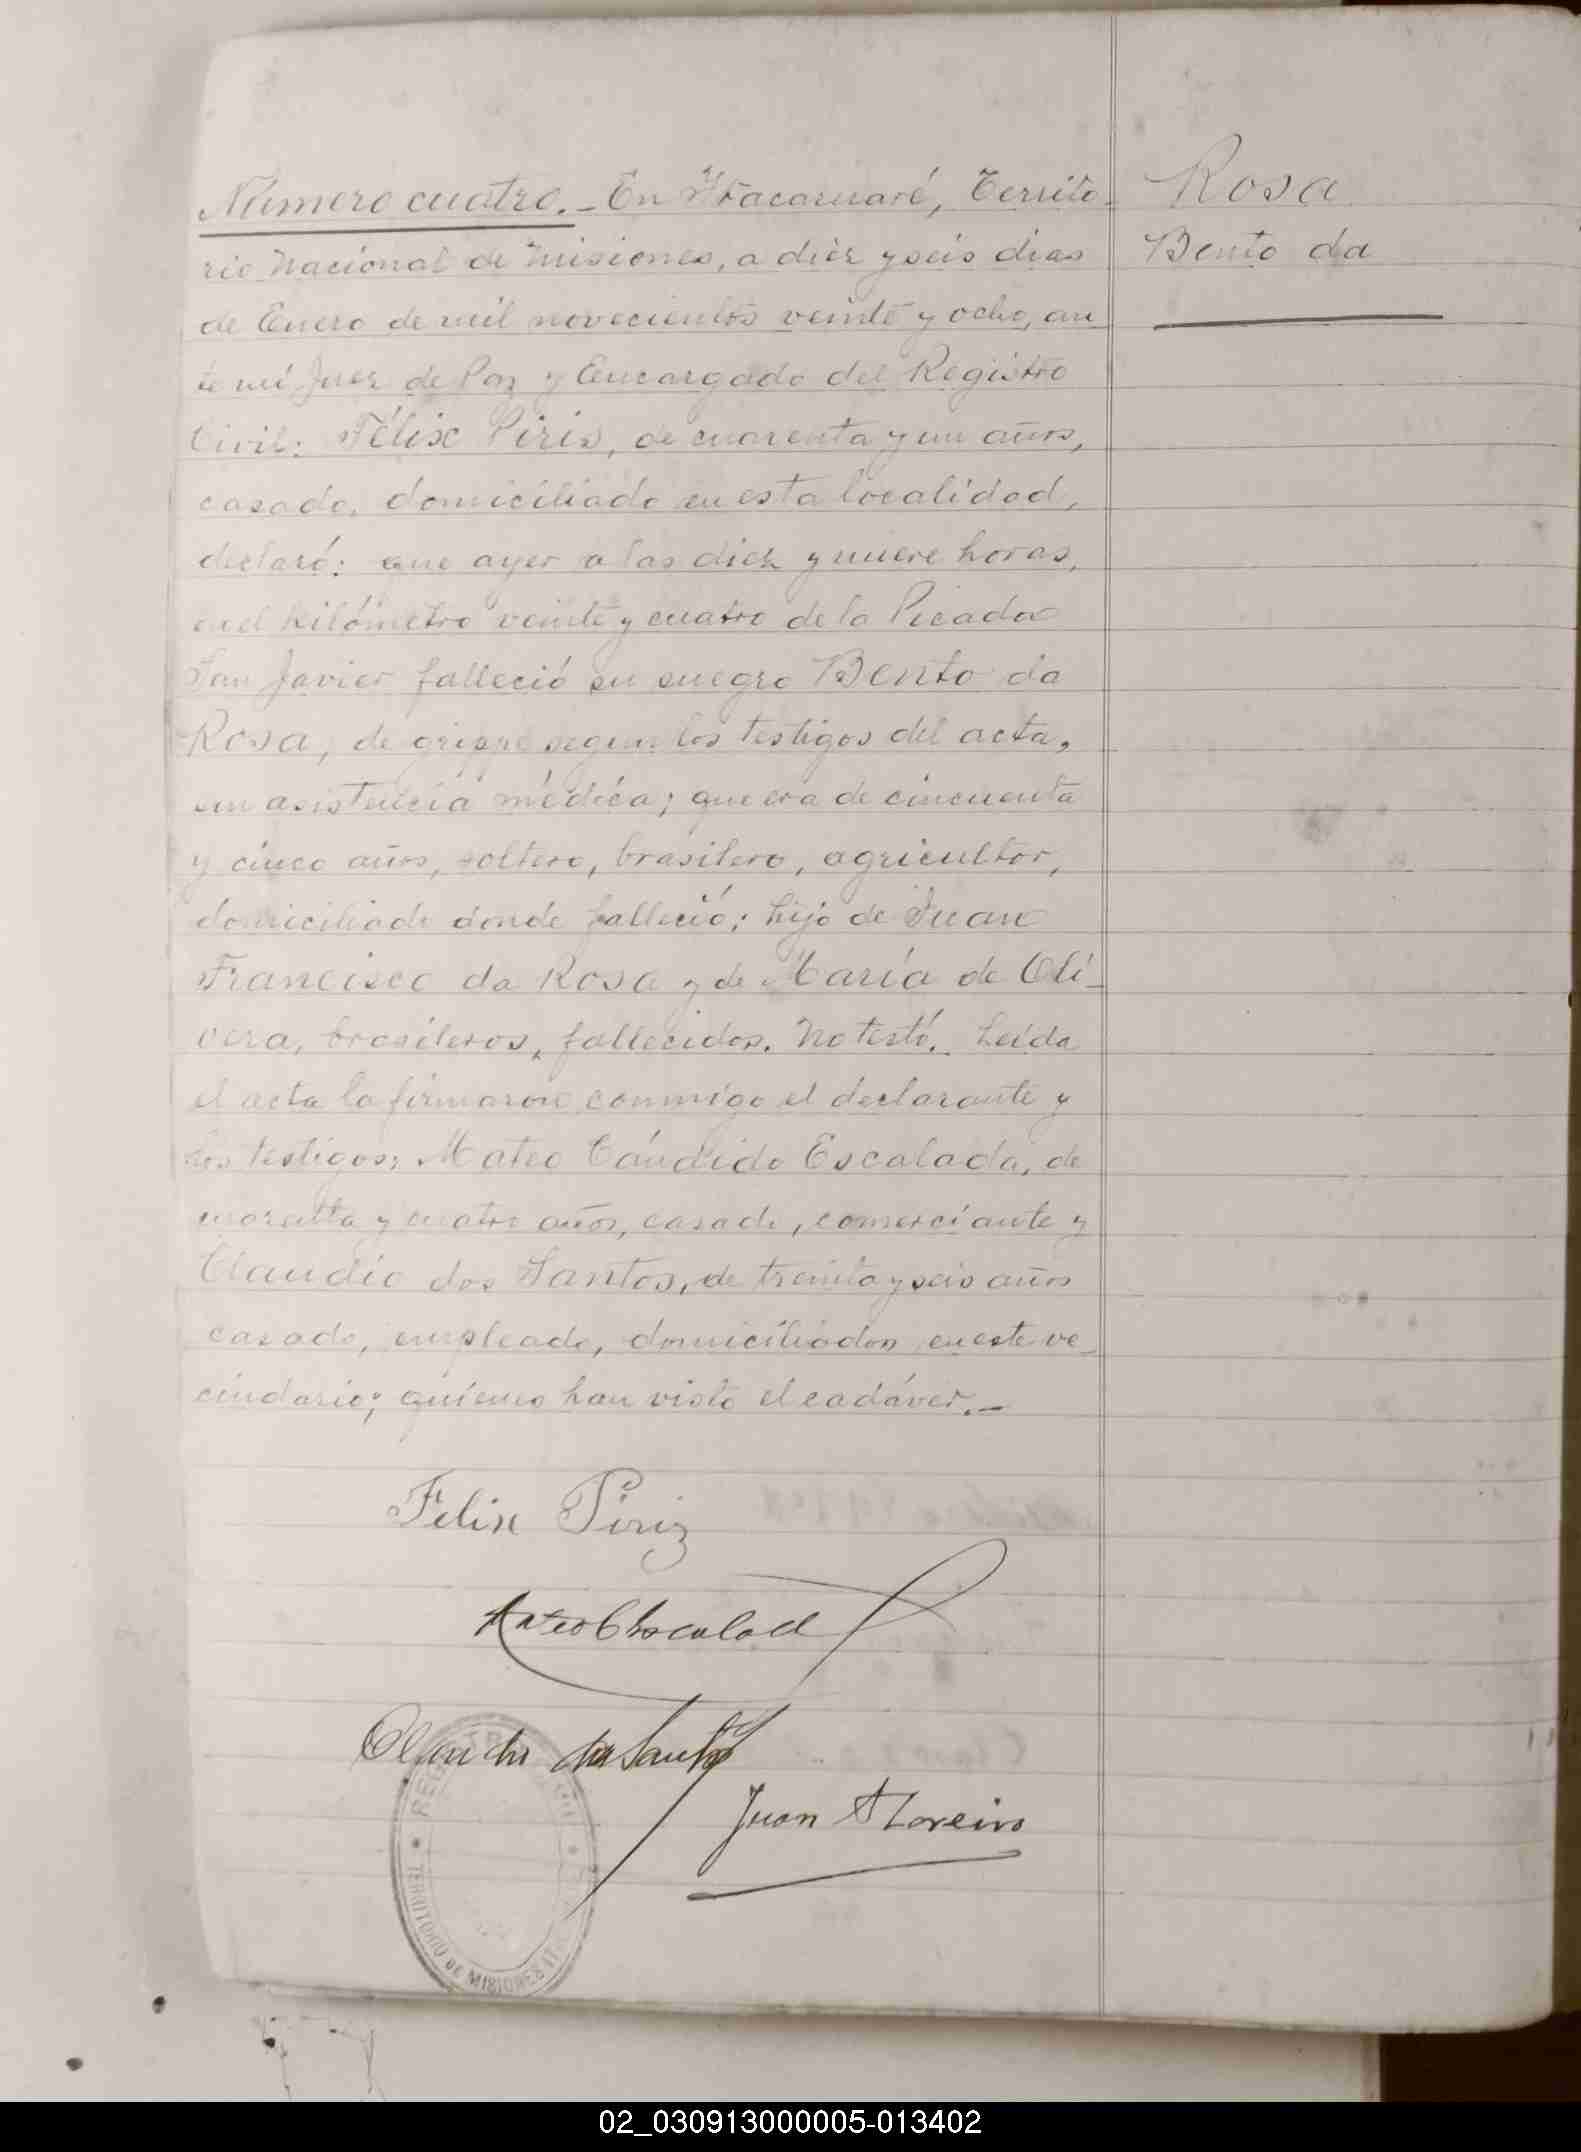 Número cuatro.- En Itacaruaré, Territo-
rio Nacional de Misiones, a diez y seis dias
de Enero de mil novecientos veinte y ocho, an
te mí Juez de Paz y Encargado del Registro
Civil: Félix Piriz, de cuarenta y un años,
casado, domiciliado en esta localidad,
declaró: que ayer a las diez y nueve horas,
en el kilómetro veinte y cuatro de la Picada
San Javier falleció su suegro Bento da
Rosa, de grippe segun los testigos del acta,
sin asistencia médica; que era de cincuenta
y cinco años, soltero, brasilero, agricultor,
domiciliado donde falleció; hijo de Juan
Francisco da Rosa y de María de Oli-
vera, brasileros, fallecidos. No testó. Leida
el acta la firmaron conmigo el declarante y
los testigos: Mateo Cándido Escalada, de
cuarenta y cuatro años, casado, comerciante y
Claudio dos Santos, de treinta y seis años
casado, empleado, domiciliados en este ve-
cindario; quienes han visto el cadáver.-
Rosa
Bento da
Felix Piriz
Mateo C Escalada
Claudio dos Santos
Juan Moreiro
TERRITORIO DE MISIONES
02_030913000005-013402